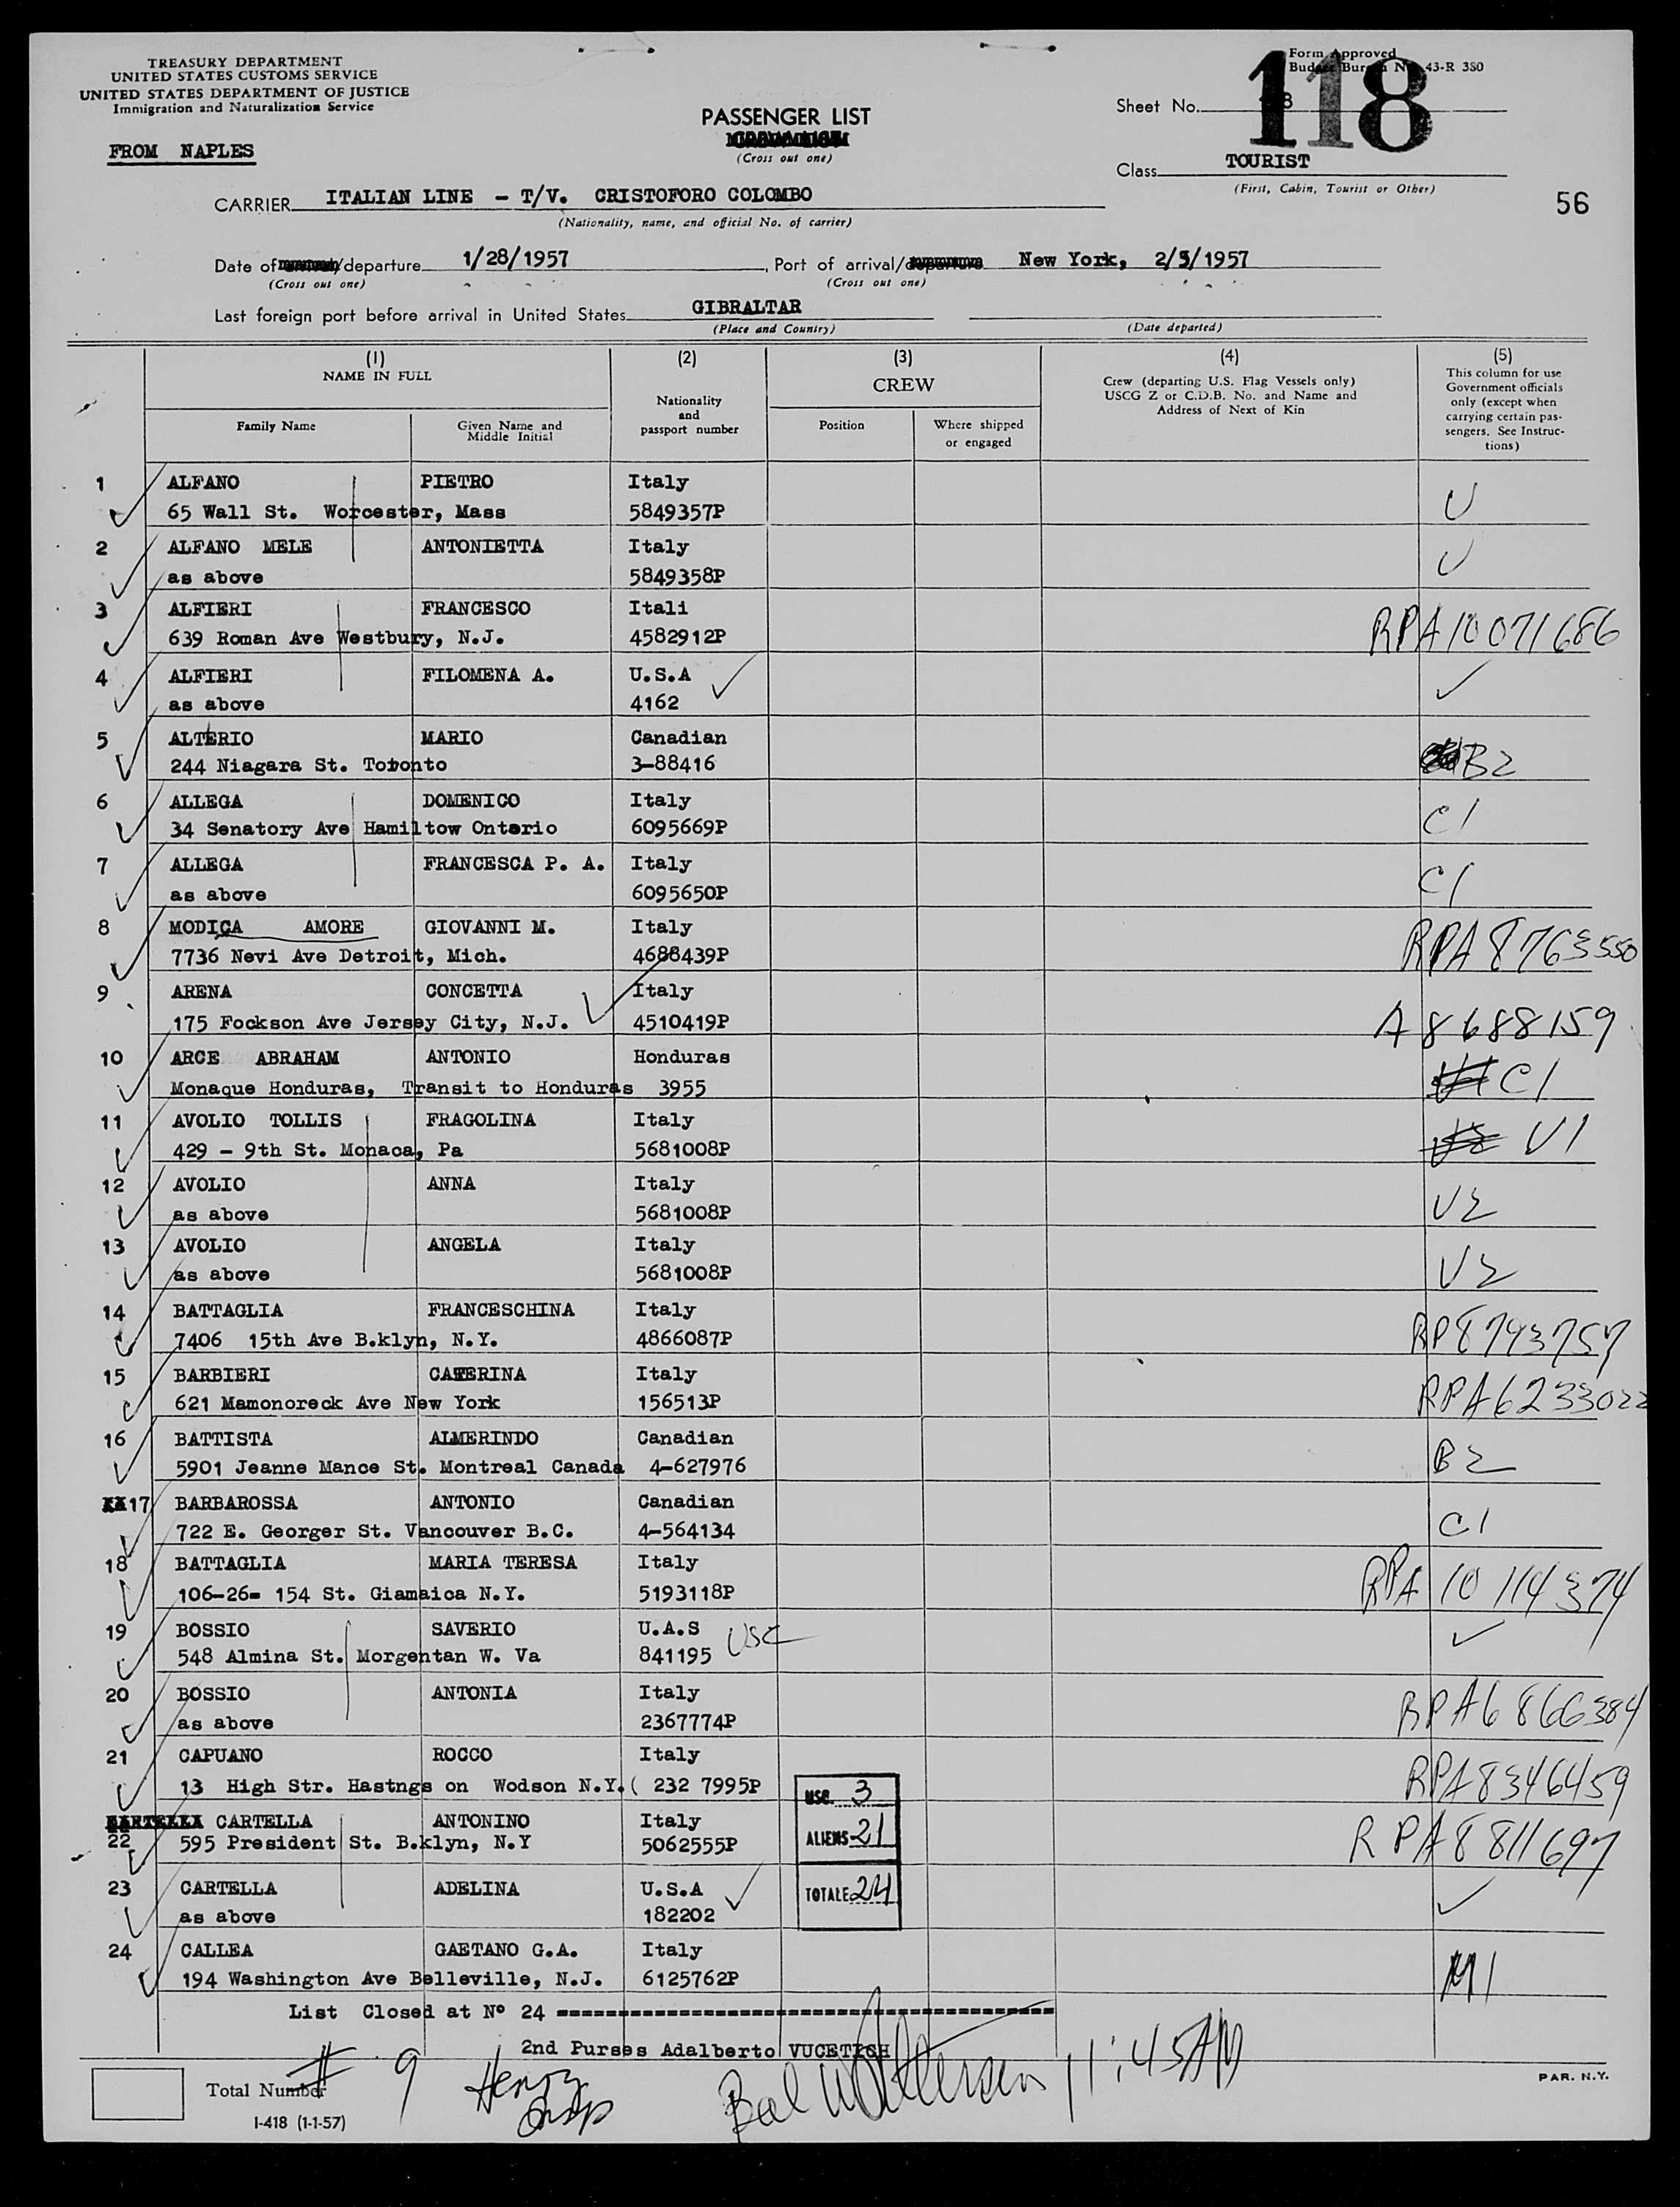 TREASURY DEPARTMENT
UNITED STATES CUSTOMS SERVICE
UNITED STATES DEPARTMENT OF JUSTICE
Immigration and Naturalization Service
FROM NAPLES
PASSENGER LIST
(Cross out one)
Form Approved
Budget Bureau No. 43-R 380
Sheet No. 118
Class TOURIST
(First, Cabin, Tourist or Other)
56
CARRIER ITALIAN LINE - T/V. CRISTOFORO COLOMBO
(Nationality, name, and official No. of carrier)
Date of /departure 1/28/1957, Port of arrival/departure New York, 2/5/1957
(Cross out one) (Cross out one)
Last foreign port before arrival in United States GIBRALTAR
(Place and Country) (Date departed)
(1) (2) (3) (4) (5)
NAME IN FULL
Family Name
Given Name and
Middle Initial
Nationality
and
passport number
CREW
Position
Where shipped
or engaged
Crew (departing U.S. Flag Vessels only)
USCG Z or C.D.B. No. and Name and
Address of Next of Kin
This column for use
Government officials
only (except when
carrying certain pas-
sengers. See Instruc-
tions)
1 ALFANO PIETRO Italy
65 Wall St. Worcester, Mass 5849357P U
2 ALFANO MELE ANTONIETTA Italy
as above 5849358P U
3 ALFIERI FRANCESCO Itali
639 Roman Ave Westbury, N.J. 4582912P RPA10071686
4 ALFIERI FILOMENA A. U.S.A
as above 4162
5 ALTERIO MARIO Canadian
244 Niagara St. Toronto 3-88416 B2
6 ALLEGA DOMENICO Italy
34 Senatory Ave Hamiltow Ontario 6095669P C1
7 ALLEGA FRANCESCA P. A. Italy
as above 6095650P C1
8 MODICA AMORE GIOVANNI M. Italy
7736 Nevi Ave Detroit, Mich. 4688439P RPA8763550
9 ARENA CONCETTA Italy
175 Fockson Ave Jersey City, N.J. 4510419P A8688159
10 ARCE ABRAHAM ANTONIO Honduras
Monaque Honduras, Transit to Honduras 3955 C1
11 AVOLIO TOLLIS FRAGOLINA Italy
429 - 9th St. Monaca, Pa 5681008P V1
12 AVOLIO ANNA Italy
as above 5681008P V2
13 AVOLIO ANGELA Italy
as above 5681008P V2
14 BATTAGLIA FRANCESCHINA Italy
7406 15th Ave B.klyn, N.Y. 4866087P RP8793757
15 BARBIERI CATERINA Italy
621 Mamonoreck Ave New York 156513P RPA6233022
16 BATTISTA ALMERINDO Canadian
5901 Jeanne Mance St. Montreal Canada 4-627976 B2
17 BARBAROSSA ANTONIO Canadian
722 E. Georger St. Vancouver B.C. 4-564134 C1
18 BATTAGLIA MARIA TERESA Italy
106-26- 154 St. Giamaica N.Y. 5193118P RPA 10 114 374
19 BOSSIO SAVERIO U.A.S USC
548 Almina St. Morgentan W. Va 841195
20 BOSSIO ANTONIA Italy
as above 2367774P RPA6866384
21 CAPUANO ROCCO Italy
13 High Str. Hastngs on Wodson N.Y.( 232 7995P RPA8346459
CARTELLA ANTONINO Italy
22 595 President St. B.klyn, N.Y 5062555P RPA8811697
23 CARTELLA ADELINA U.S.A
as above 182202
24 CALLEA GAETANO G.A. Italy
194 Washington Ave Belleville, N.J. 6125762P M1
USC. 3
ALIENS 21
TOTALE 24
List Closed at Nº 24 ================
2nd Purses Adalberto VUCETICH
# 9 Henry 11:45AM
Total Number
I-418 (1-1-57)
PAR. N.Y.